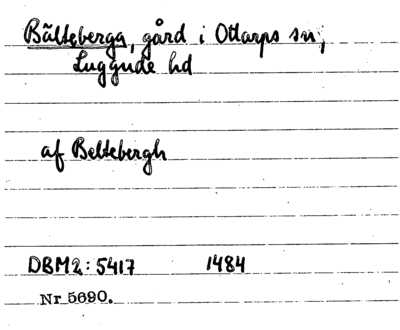 Bälteberga, gård i Ottarps sn,
Luggude hd
af Beltebergh
DBM2: 5417 1484
Nr 5690.